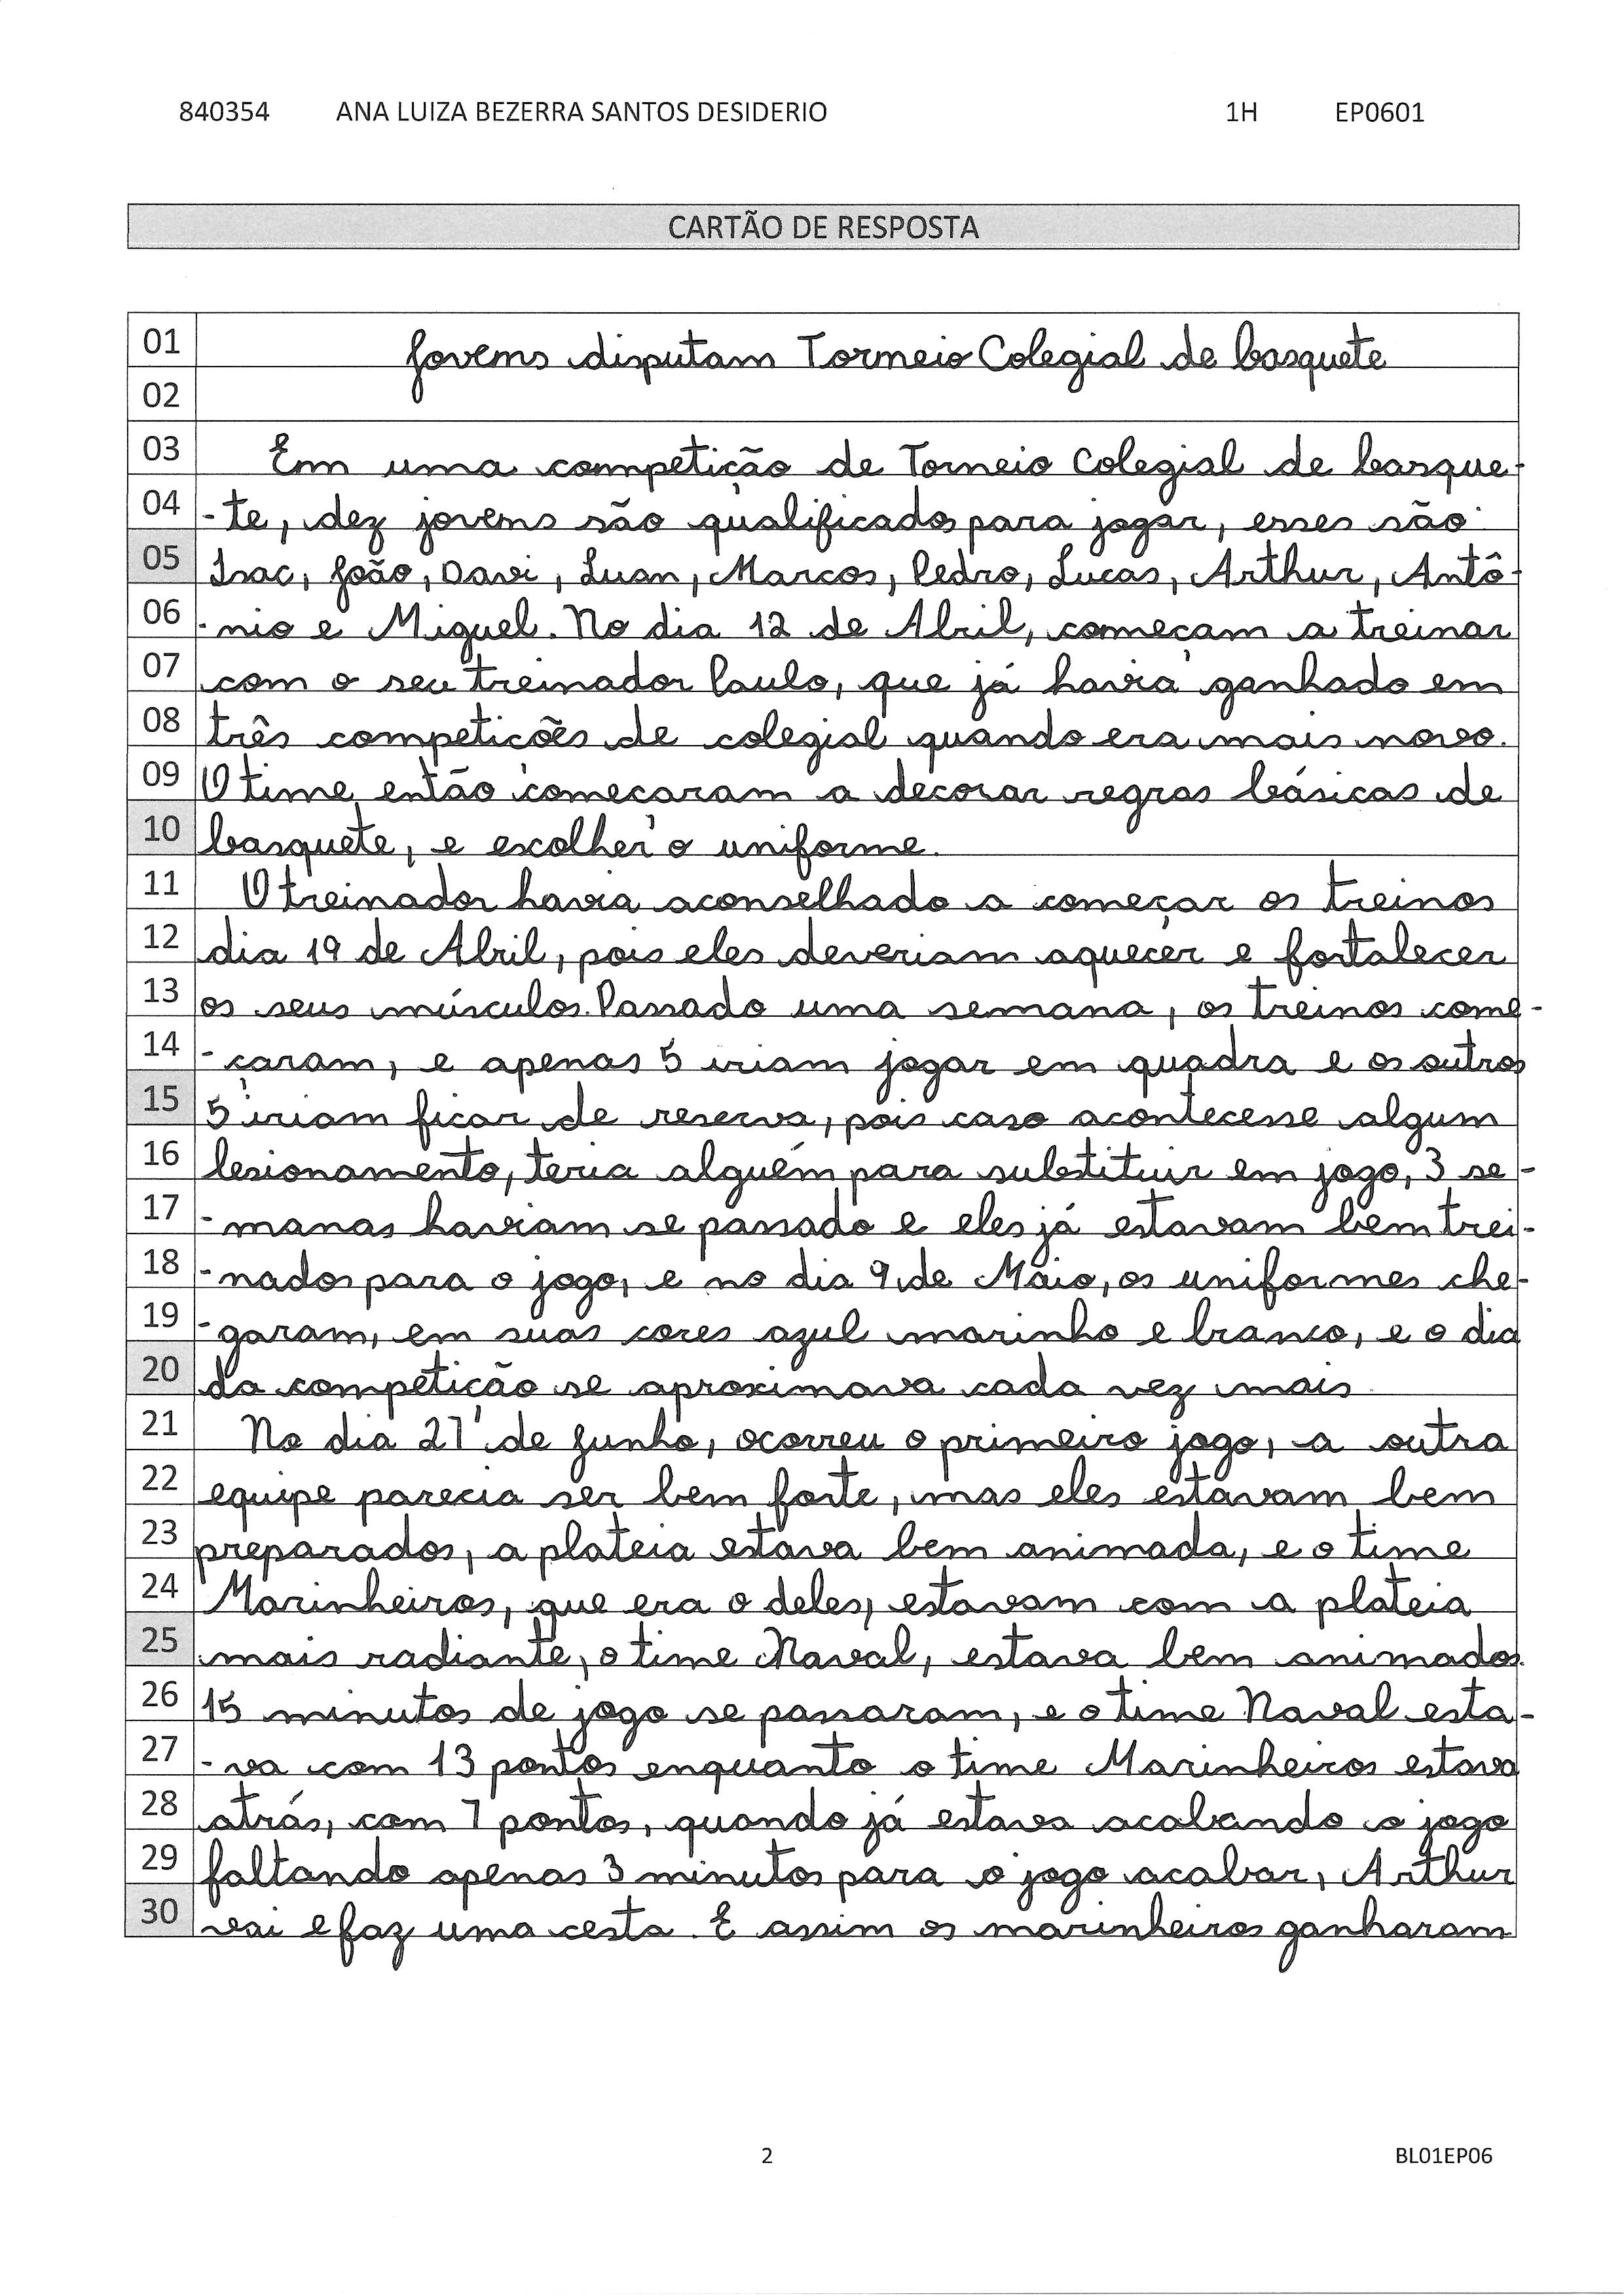 840354 ANA LUIZA BEZERRA SANTOS DESIDERIO 1H EP0601
CARTÃO DE RESPOSTA
01 Jovens disputam Torneio Colegial de basquete
02
03 Em uma competição de Torneio Colegial de basque-
04 -te, dez jovens são qualificados para jogar, esses são
05 Isac, João, Davi, Luan, Marcos, Pedro, Lucas, Arthur, Antô-
06 -nio e Miguel. No dia 12 de Abril, começam a treinar
07 com o seu treinador Paulo, que já havia ganhado em
08 três competições de colegial quando era mais novo.
09 O time então começaram a decorar regras básicas de
10 basquete, e escolher o uniforme.
11 O treinador havia aconselhado a começar os treinos
12 dia 19 de Abril, pois eles deveriam aquecer e fortalecer
13 os seus músculos. Passado uma semana, os treinos come-
14 -çaram, e apenas 5 iriam jogar em quadra e os outros
15 5 iriam ficar de reserva, pois caso acontecesse algum
16 lesionamento, teria alguém para substituir em jogo, 3 se-
17 -manas haviam se passado e eles já estavam bem trei-
18 -nados para o jogo, e no dia 9 de Maio, os uniformes che-
19 -garam, em suas cores azul marinho e branco, e o dia
20 da competição se aproximava cada vez mais.
21 No dia 27 de Junho, ocorreu o primeiro jogo, a outra
22 equipe parecia ser bem forte, mas eles estavam bem
23 preparados, a plateia estava bem animada, e o time
24 Marinheiros, que era o deles, estavam com a plateia
25 mais radiante, o time Naval, estava bem animados.
26 15 minutos de jogo se passaram, e o time Naval esta-
27 -va com 13 pontos enquanto o time Marinheiros estava
28 atrás, com 7 pontos, quando já estava acabando o jogo
29 faltando apenas 3 minutos para o jogo acabar, Arthur
30 vai e faz uma cesta. E assim os marinheiros ganharam
2 BL01EP06